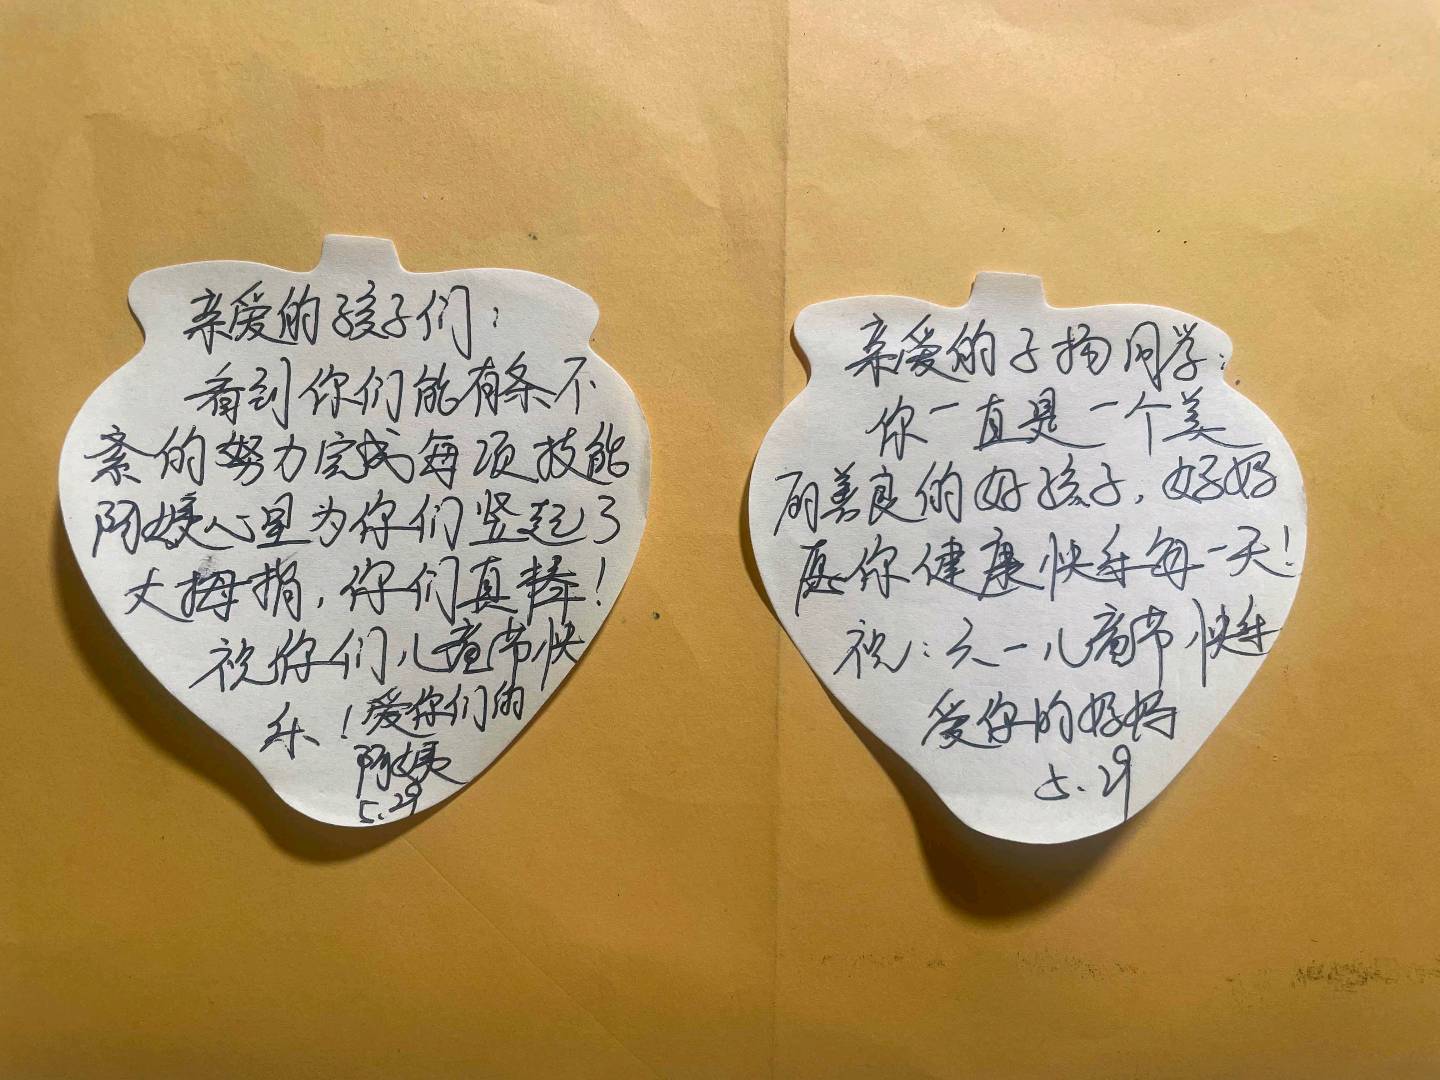 亲爱的孩子们：
看到你们能有条不
紊的努力完成每项技能
阿姨心里为你们竖起了
大拇指，你们真棒！
祝你们儿童节快
乐！爱你们的
阿姨
5.29
亲爱的子扬同学：
你一直是一个美
丽善良的好孩子，妈妈
愿你健康快乐每一天！
祝：六一儿童节快乐
爱你的妈妈
5.29